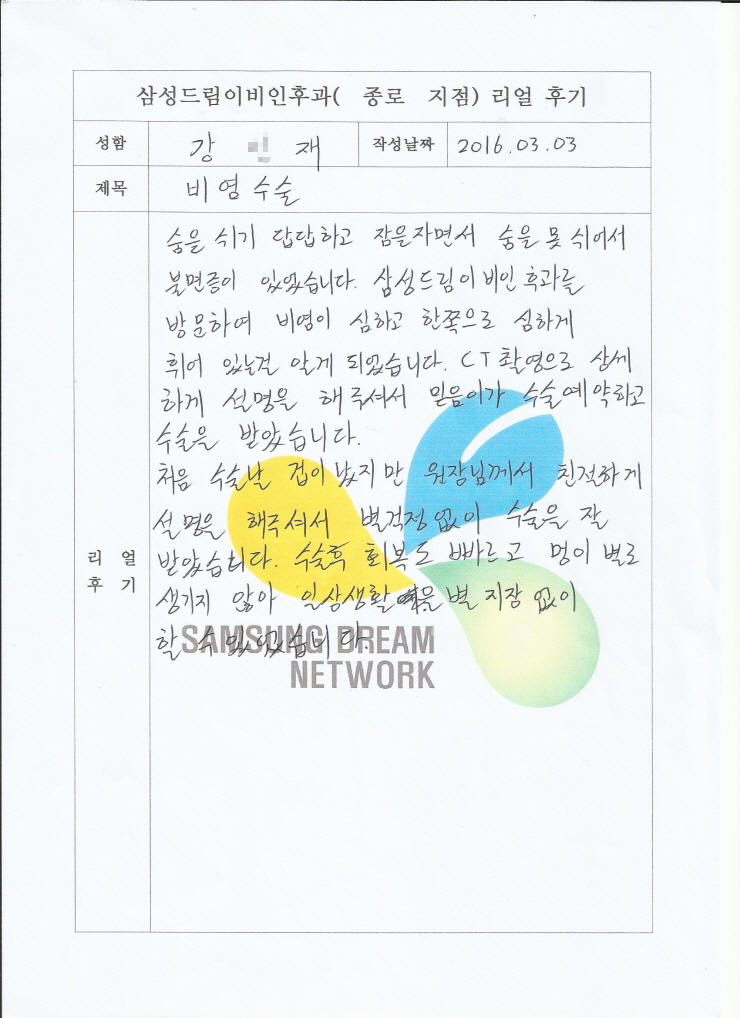 삼성드림이비인후과( 종로 지점) 리얼 후기
성함 강 재 작성날짜 2016.03.03
제목 비염수술
숨을 쉬기 답답하고 잠을자면서 숨을 못 쉬어서
불면증이 있었습니다. 삼성드림이비인후과를
방문하여 비염이 심하고 한쪽으로 심하게
휘어 있는걸 알게 되었습니다. CT촬영으로 상세
하게 설명을 해주셔서 믿음이가 수술예약하고
수술을 받았습니다.
처음 수술날 겁이 났지만 원장님께서 친절하게
설명을 해주셔서 별걱정없이 수술을 잘
받았습니다. 수술후 회복도 빠르고 멍이 별로
리 얼
후 기
생기지 않아 일상생활을 별 지장 없이
할 수 있었습니다.
SAMSUNG DREAM
NETWORK